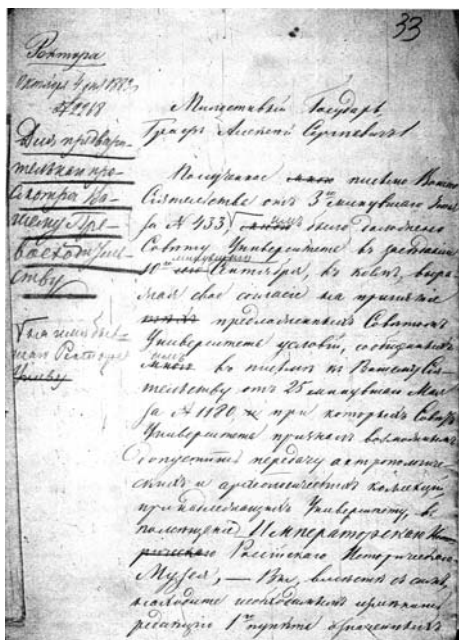 33
Ректора
Октября 4 дня 1883
№ 2218
Для предвари-
тельнаго про-
смотра Ва-
шему Пре-
восходитель-
ству
Милостивый Государь,
Графъ Алексей Сергеевичъ!
Полученное мною письмо Вашего
Сіятельства отъ 3го минувшаго
за № 433, было доложено
Совѣту Университета въ засѣданіи
10го минувшаго Сентября, въ коемъ, выра-
жая свое согласіе на принятіе
предложенныхъ Совѣтомъ
Университета условій, сообщенныхъ
въ письмѣ къ Вашему Сія-
тельству отъ 25 минувшаго Мая
за № 1180, при которыхъ Совѣтъ
Университета призналъ возможнымъ
допустить передачу антропологиче-
скихъ и археологическихъ коллекцій,
принадлежащихъ Университету, въ
помещеніи Императорскаго
Россійскаго Историческаго
Музея, — Вы, вместѣ съ симъ,
находите необходимымъ измѣнить
редакцію 1го пункта означенныхъ